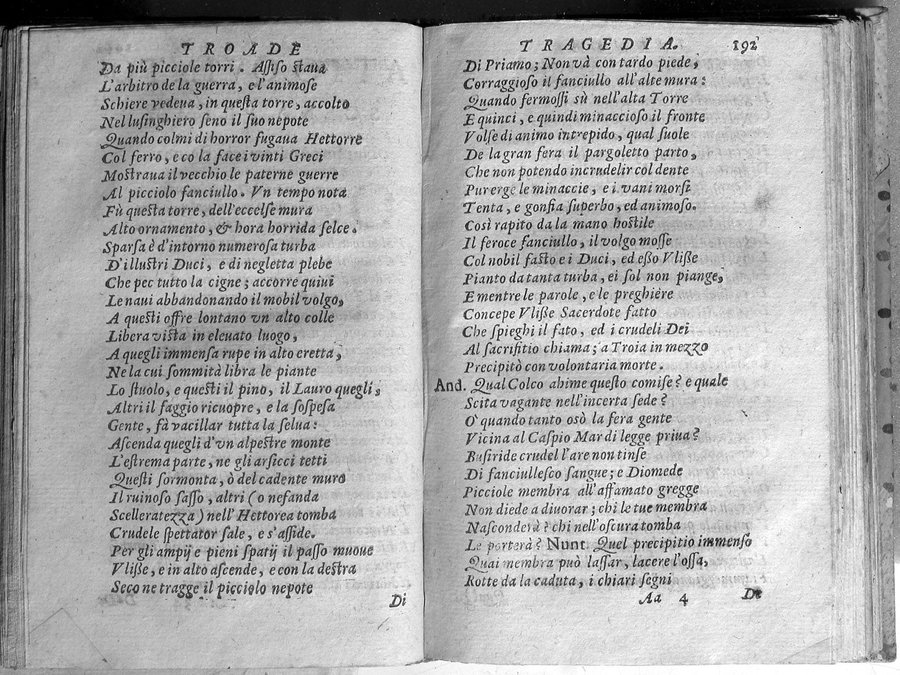 TROADE
Da più picciole torri. Aſſiſo ſtaua
L'arbitro de la guerra, e l'animoſe
Schiere vedeua, in queſta torre, accolto
Nel luſinghiero ſeno il ſuo nepote
Quando colmi di horror fugaua Hettorre
Col ferro, e co la face i vinti Greci
Moſtraua il vecchio le paterne guerre
Al picciolo fanciullo. Vn tempo nota
Fù queſta torre, dell'eccelſe mura
Alto ornamento, & hora horrida ſelce.
Sparſa è d'intorno numeroſa turba
D'illuſtri Duci, e di negletta plebe
Che pec tutto la cigne; accorre quiui
Le naui abbandonando il mobil volgo,
A queſti offre lontano vn alto colle
Libera viſta in eleuato luogo,
A quegli immenſa rupe in alto eretta,
Ne la cui ſommità libra le piante
Lo ſtuolo, e queſti il pino, il Lauro quegli,
Altri il faggio ricuopre, e la ſoſpeſa
Gente, fà vacillar tutta la ſelua:
Aſcenda quegli d'vn alpeſtre monte
L'eſtrema parte, ne gli arſicci tetti
Queſti ſormonta, ò del cadente muro
Il ruinoſo ſaſſo, altri (o nefanda
Scelleratezza) nell'Hettorea tomba
Crudele ſpettator ſale, e s'aſſide.
Per gli ampij e pieni ſpatij il paſſo muoue
Vliſſe, e in alto aſcende, e con la deſtra
Seco ne tragge il picciolo nepote
Di
TRAGEDIA. 192
Di Priamo; Non và con tardo piede,
Corraggioſo il fanciullo all'alte mura:
Quando fermoſſi sù nell'alta Torre
E quinci, e quindi minaccioſo il fronte
Volſe di animo intrepido, qual ſuole
De la gran fera il pargoletto parto,
Che non potendo incrudelir col dente
Pur erge le minaccie, e i vani morſi
Tenta, e gonfia ſuperbo, ed animoſo.
Così rapito da la mano hoſtile
Il feroce fanciullo, il volgo moſſe
Col nobil faſto e i Duci, ed eſſo Vliſſe
Pianto da tanta turba, ei ſol non piange,
E mentre le parole, e le preghiere
Concepe Vliſſe Sacerdote fatto
Che ſpieghi il fato, ed i crudeli Dei
Al ſacrifitio chiama; a Troia in mezzo
Precipitò con volontaria morte.
And. Qual Colco ahime queſto comiſe? e quale
Scita vagante nell'incerta ſede?
O' quando tanto osò la fera gente
Vicina al Caſpio Mar di legge priua?
Buſiride crudel l'are non tinſe
Di fanciulleſco ſangue; e Diomede
Picciole membra all'affamato gregge
Non diede a diuorar; chi le tue membra
Naſconderà? chi nell'oſcura tomba
Le porterà? Nunt. Quel precipitio immenſo
Quai membra può laſſar, lacere l'oſſa,
Rotte da la caduta, i chiari ſegni
Aa 4 De